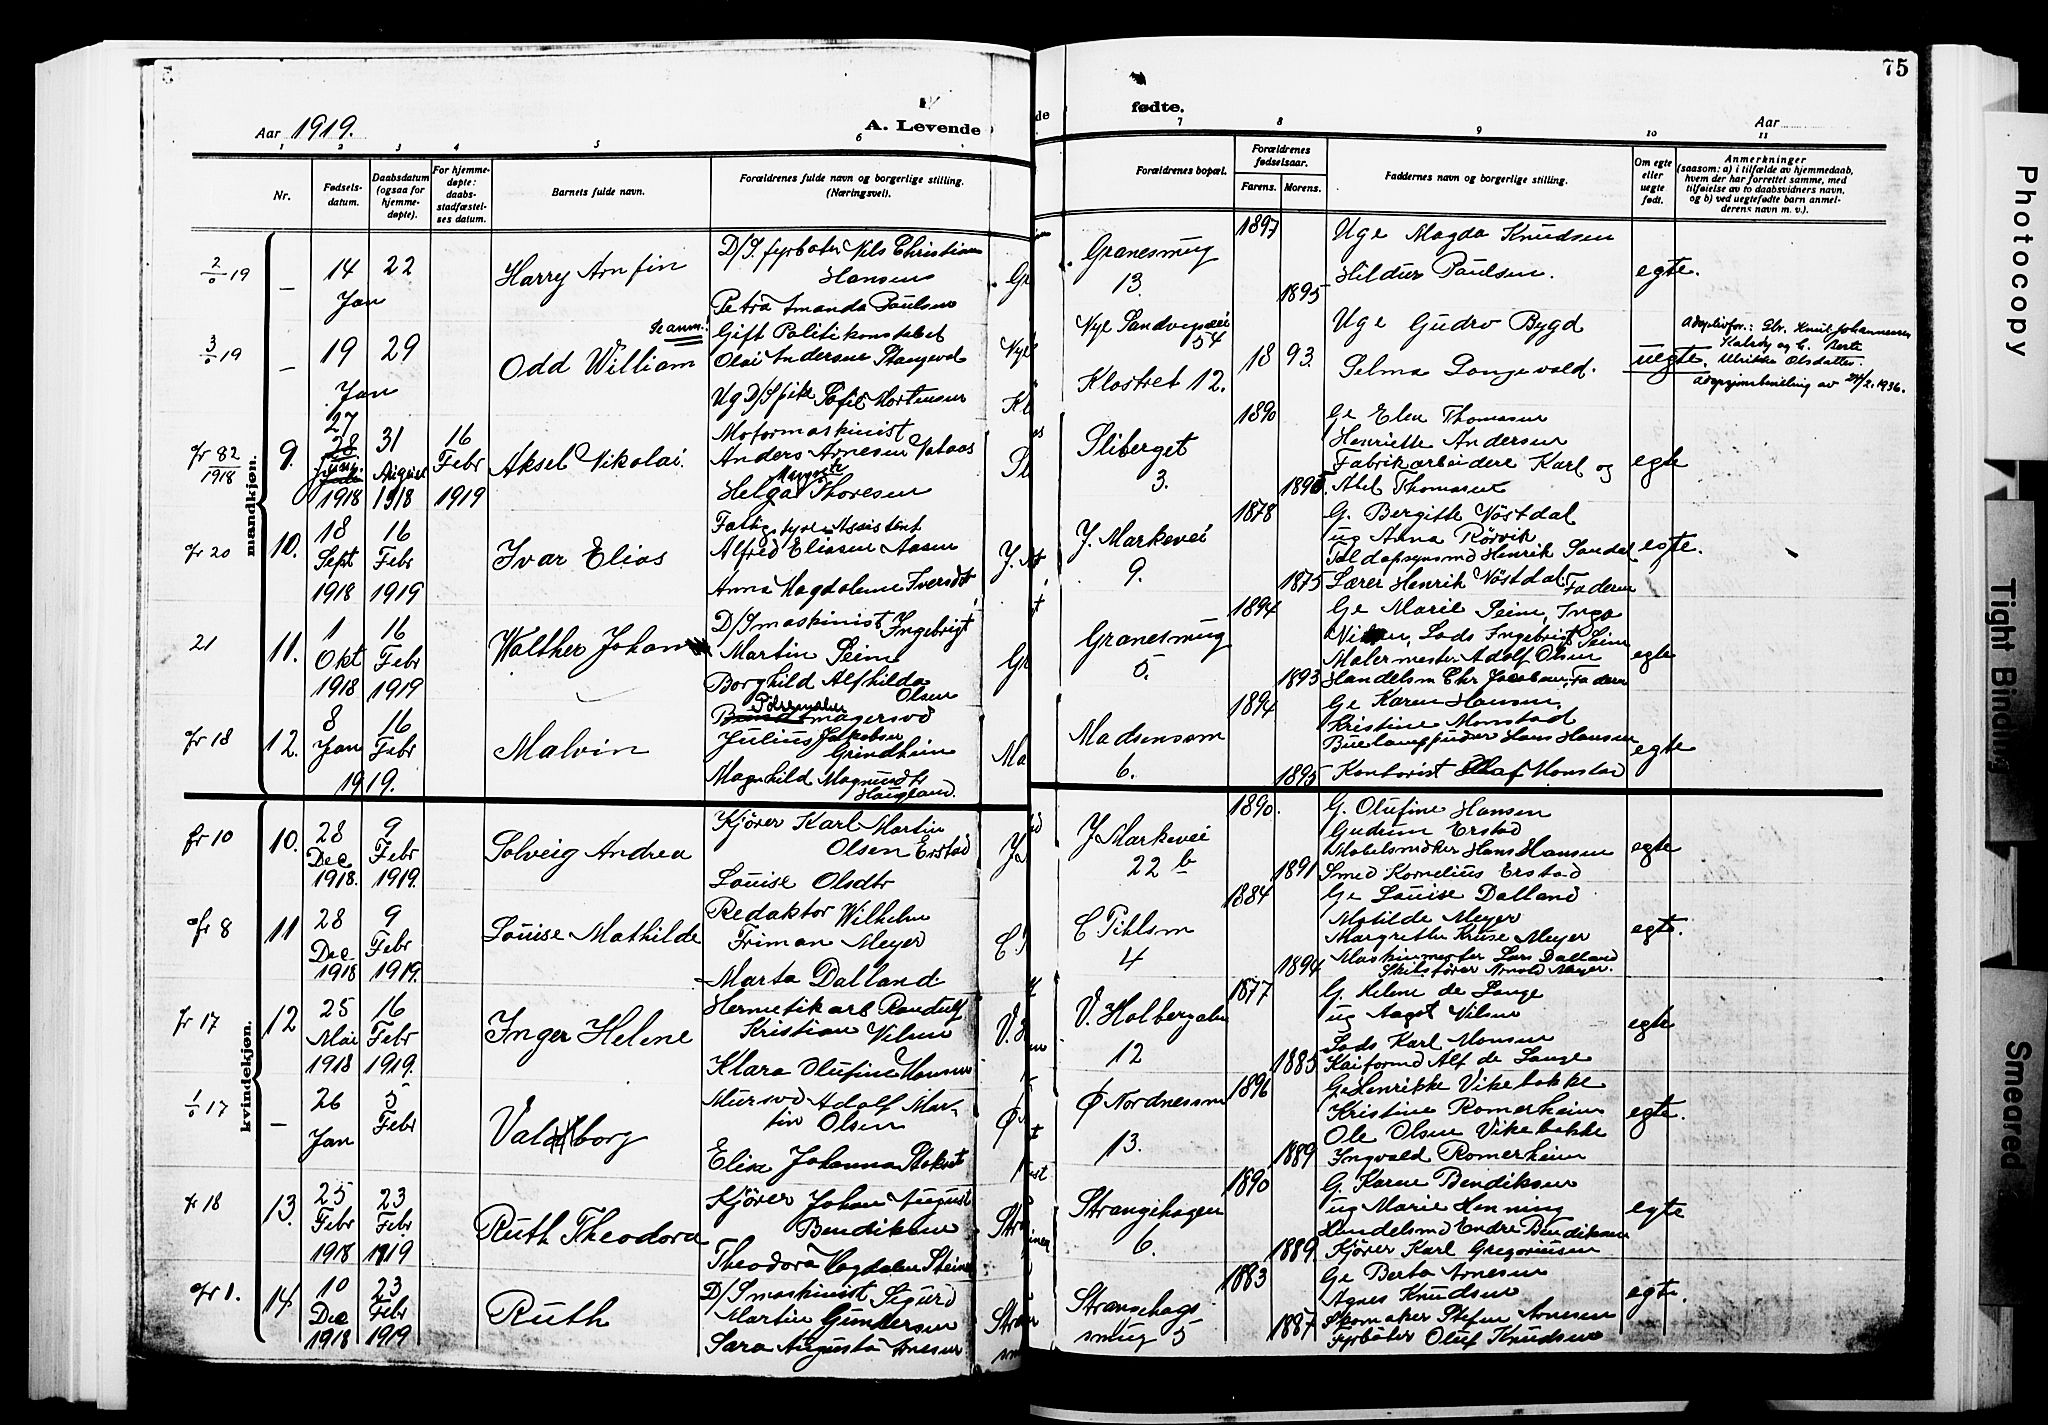 75
Aar 1919.
A. Levende
fødte.
Aar
1 2 3 4 5 6
7 8 9 10 11
Nr.
Fødsels-
datum.
Daabsdatum
(ogsaa for
hjemme-
døpte).
For hjemme-
døpte:
daabs-
stadfæstel-
ses datum.
Barnets fulde navn.
Forældrenes fulde navn og borgerlige stilling.
(Næringsvei).
Forældrenes bopæl.
Forældrenes
fødselsaar.
Farens. Morens.
Faddernes navn og borgerlige stilling.
Om egte
eller
uegte
født.
Anmerkninger
(saasom: a) i tilfælde av hjemmedaab,
hvem der har forrettet samme, med
tilføielse av to daabsvidners navn,
og b) ved uegtefødte barn anmel-
derens navn m. v.).
mandkjøn.
2/0 19
–
14
Jan
22
Harry Arnfin
D/S. fyrbøter Nils Christian
Hansen
Petra Amanda Paulsen
Granesmug
13.
1897
1895
Uge Magda Knudsen
Hildur Paulsen.
egte.
3/0 19
–
19
Jan
29
Se anm.!
Odd William
Gift Politikonstabel
Olai Andersen Stangevold
Ug D/S pike Sofie Mortensen
Nye Sandvigsvei
54
Klostret 12.
18 93.
Uge Gudrv Bygd
Selma Langevald.
uegte.
Adoptivfor.: Elv. Knut Johannessen
Kalsøy og h. Berte
Ulrikke Olsdatter
Adopsjonsbevilling av 24/2.1936.
fr 82
1918
9.
27
28
1918
31
August
1918
16
Febr
1919
Aksel Nikolai.
Motormaskinist
Anders Arnesen Valaas
Helga Thoresen
Sliberget
3.
1890
1895
Ge Elen Thomasen
Henriette Andersen
Fabrikarbeidere Karl og
Abel Thomasen
egte
fr 20
10.
18
Sept
1918
16
Febr
1919
Ivar Elias
Fattig. fyr Assistent
Alfred Eliasen Aasen
Anna Magdalene Iversdtr
Y. Markevei
9.
1878
1875
G. Bergitte Nøstdal
ug Anna Rørvik
Toldopsynsmd Henrik Sandal
Lærer Henrik Nøstdal. Faderen
egte.
21
11.
1
Okt
1918
16
Febr
1919
Walther Johan
D/S maskinist Ingebrigt
Martin Seim
Borghild Alfhilda
Olsen
Granesmug
5.
1894
1893
Ge Marie Seim, Inga
Lods Ingebrigt Seim
Malermester Adolf Olsen
Handelsm Chr Jacobsen, Faderen
egte
fr 18
12.
8
Jan
1919.
16
Febr
Malvin
magersvd
Julius Jakobsen
Grindheim
Magnhild Magnusdtr
Haugland.
Madsensm
6.
1894
1895
Ge Karen Hansen,
Kristine Monstad
Hans Hansen
Kontorist Olaf Monstad
egte
kvindekjøn.
fr 10
10.
28
Dec
1918.
9
Febr
1919.
Solveig Andrea
Kjører Karl Martin
Olsen Erstad
Louise Olsdtr
Y Markevei
22 b
1890.
1891
G. Olufine Hansen
Gudrun Erstad
Møbelsnedker Hans Hansen
Smed Kornelius Erstad
egte
fr 8
11
28
Dec
1918
9
Febr
1919.
Louise Mathilde
Redaktør Wilhelm
Friman Meyer
Marta Dalland
C Pihlsm
4
1884
1894
Ge Louise Dalland
Matilde Meyer
Margrethe Kruse Meyer
Maskinmester Lars Dalland
Skibsfører Arnold Meyer.
egte.
fr 17
12
25
Mai
1918
16
Febr
1919.
Inger Helene
Hermetikarb Randulf
Kristian Nilsen
Klara Olufine Hansen
V. Holbergalm
12
1877
1885
G. Helene de Lange
ug Aagot Nilsen
Lods Karl Monsen
Kaiformd Alf de Lange
egte
1/0 17
–
26
Jan
5
Febr
Valborg
Mursvd Adolf Mar-
tin Olsen
Elise Johanna Stokvst
Ø Nordnessm
13.
1896
1889
Ge Henrikke Vikebakke
Kristine Romerheim
Ole Olsen Vikebakke
Ingvald Romerheim
egte.
fr 18
13.
25
Febr
1918
23
Febr
1919
Ruth Theodora
Kjører Johan August
Bendiksen
Theodora Magdalen Steine
Strangehagen
6.
1890
1889
G. Karen Bendiksen
ug Marie Henning
Handelsmd Endre Bendiksen
Kjører Karl Gregoriussen
egte
fr 1.
14.
10
Dec
1918
23
Febr
1919
Ruth
D/S maskinist Sigurd
Martin Gundersen
Sara Augusta Arnesen
Strangehags
smug 5
1883
1887
Ge Berta Arnesen
Agnes Knudsen
Skomaker Stefen Arnesen
Fyrbøter Oluf Knudsen
egte.
Photocopy
Tight Binding
Smeared